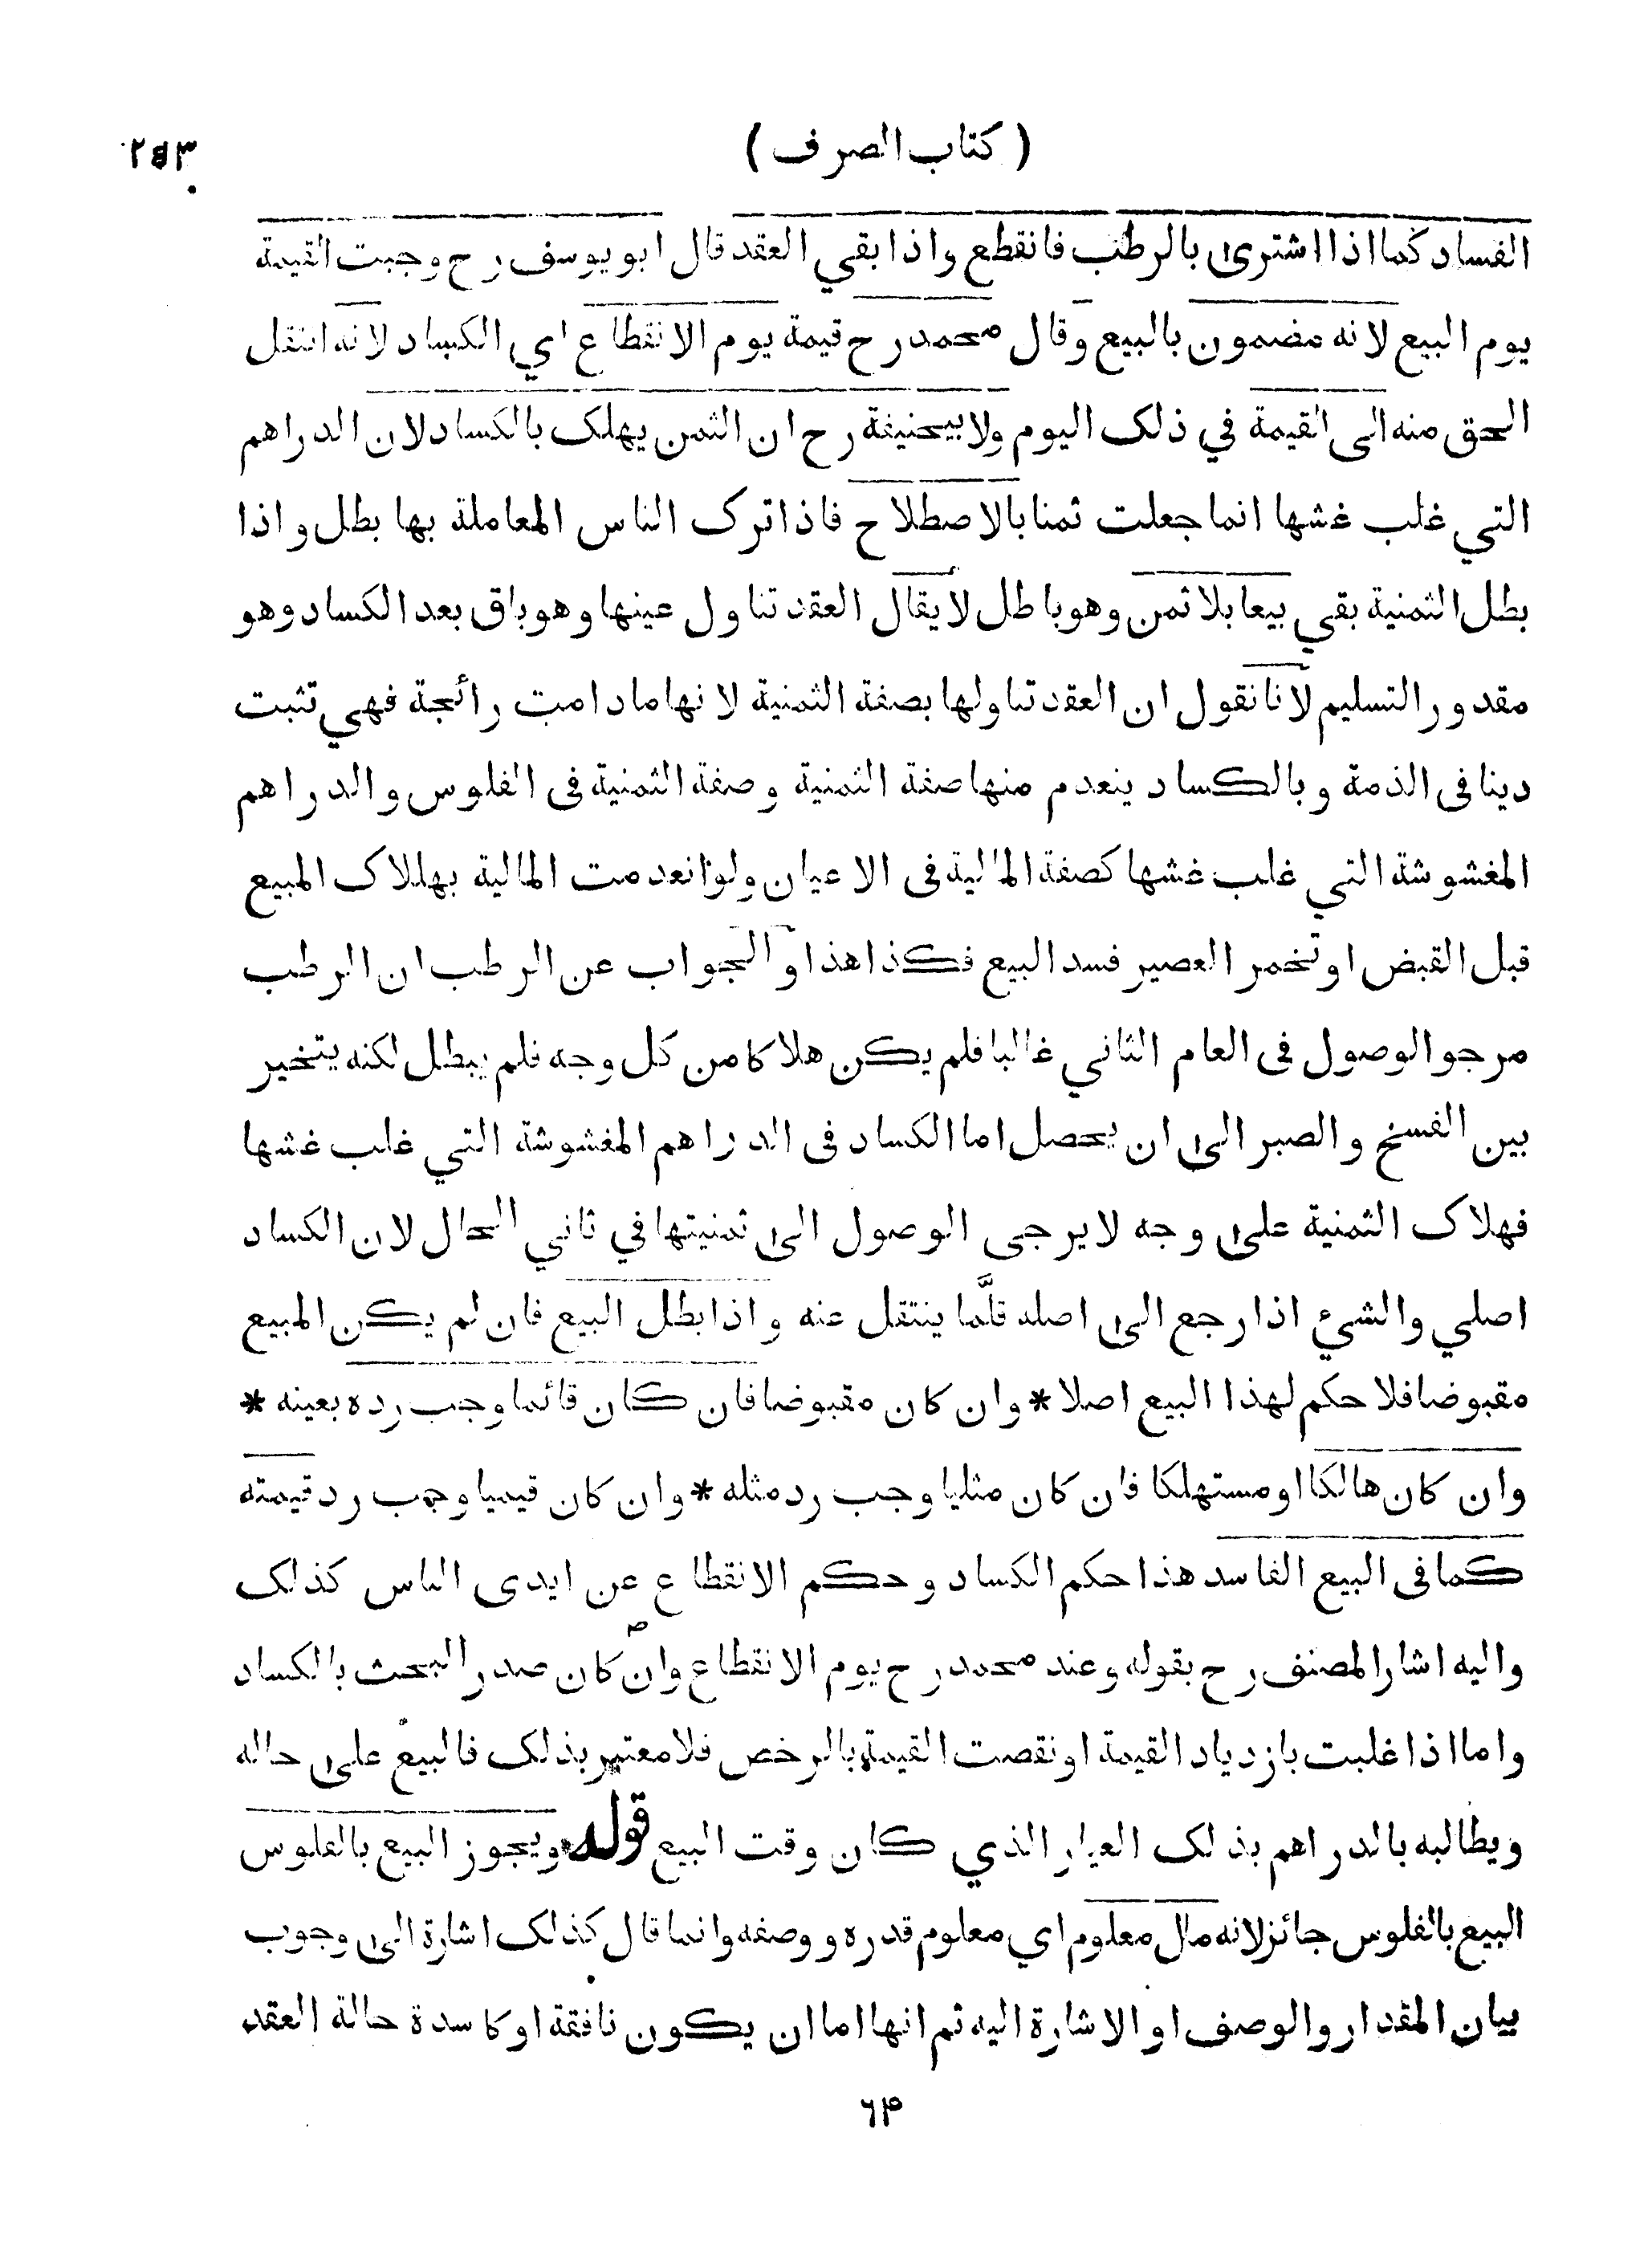 ( كتاب الصرف ) ٢٥٣
الفساد كما اذا اشترى بالرطب فانقطع واذا بقي العقد قال ابو يوسف رح وجبت القيمة
يوم البيع لانه مضمون بالبيع وقال محمد رح قيمة يوم الانقطاع اي الكساد لانه انتقل
الحق منه الى القيمة في ذلك اليوم ولابيحنيفة رح ان الثمن يهلك بالكساد لان الدراهم
التي غلب غشها انما جعلت ثمنا بالاصطلاح فاذا ترك الناس المعاملة بها بطل واذا
بطل الثمنية بقي بيعا بلا ثمن وهو باطل لا يقال العقد تناول عينها وهو باق بعد الكساد وهو
مقدور التسليم لانا نقول ان العقد تناولها بصفة الثمنية لانها ما دامت رائجة فهي تثبت
دينا فى الذمة وبالكساد ينعدم منها صفة الثمنية وصفة الثمنية فى الفلوس والدراهم
المغشوشة التي غلب غشها كصفة المالية فى الاعيان ولو انعدمت المالية بهلاك المبيع
قبل القبض او تخمر العصير فسد البيع فكذا هذا والجواب عن الرطب ان الرطب
مرجو الوصول فى العام الثاني غالبا فلم يكن هلاكا من كل وجه فلم يبطل لكنه يتخير
بين الفسخ والصبر الى ان يحصل اما الكساد فى الدراهم المغشوشة التي غلب غشها
فهلاك الثمنية على وجه لا يرجى الوصول الى ثمنيتها في ثاني الحال لان الكساد
اصلي والشئ اذا رجع الى اصله قلّما ينتقل عنه واذا بطل البيع فان لم يكن المبيع
مقبوضا فلا حكم لهذا البيع اصلا * وان كان مقبوضا فان كان قائما وجب رده بعينه *
وان كان هالكا او مستهلكا فان كان مثليا وجب رد مثله * وان كان قيميا وجب رد قيمته
كما فى البيع الفاسد هذا حكم الكساد وحكم الانقطاع عن ايدى الناس كذلك
واليه اشار المصنف رح بقوله وعند محمد رح يوم الانقطاع وان كان صدر البحث بالكساد
واما اذا غلبت بازدياد القيمة او نقصت القيمة بالرخص فلا معتبر بذلك فالبيع على حاله
ويطالبه بالدراهم بذلك العيار الذي كان وقت البيع قوله ويجوز البيع بالفلوس
البيع بالفلوس جائز لانه مال معلوم اي معلوم قدره ووصفه وانما قال كذلك اشارة الى وجوب
بيان المقدار والوصف او الاشارة اليه ثم انها اما ان يكون نافقة او كاسدة حالة العقد
٦٤